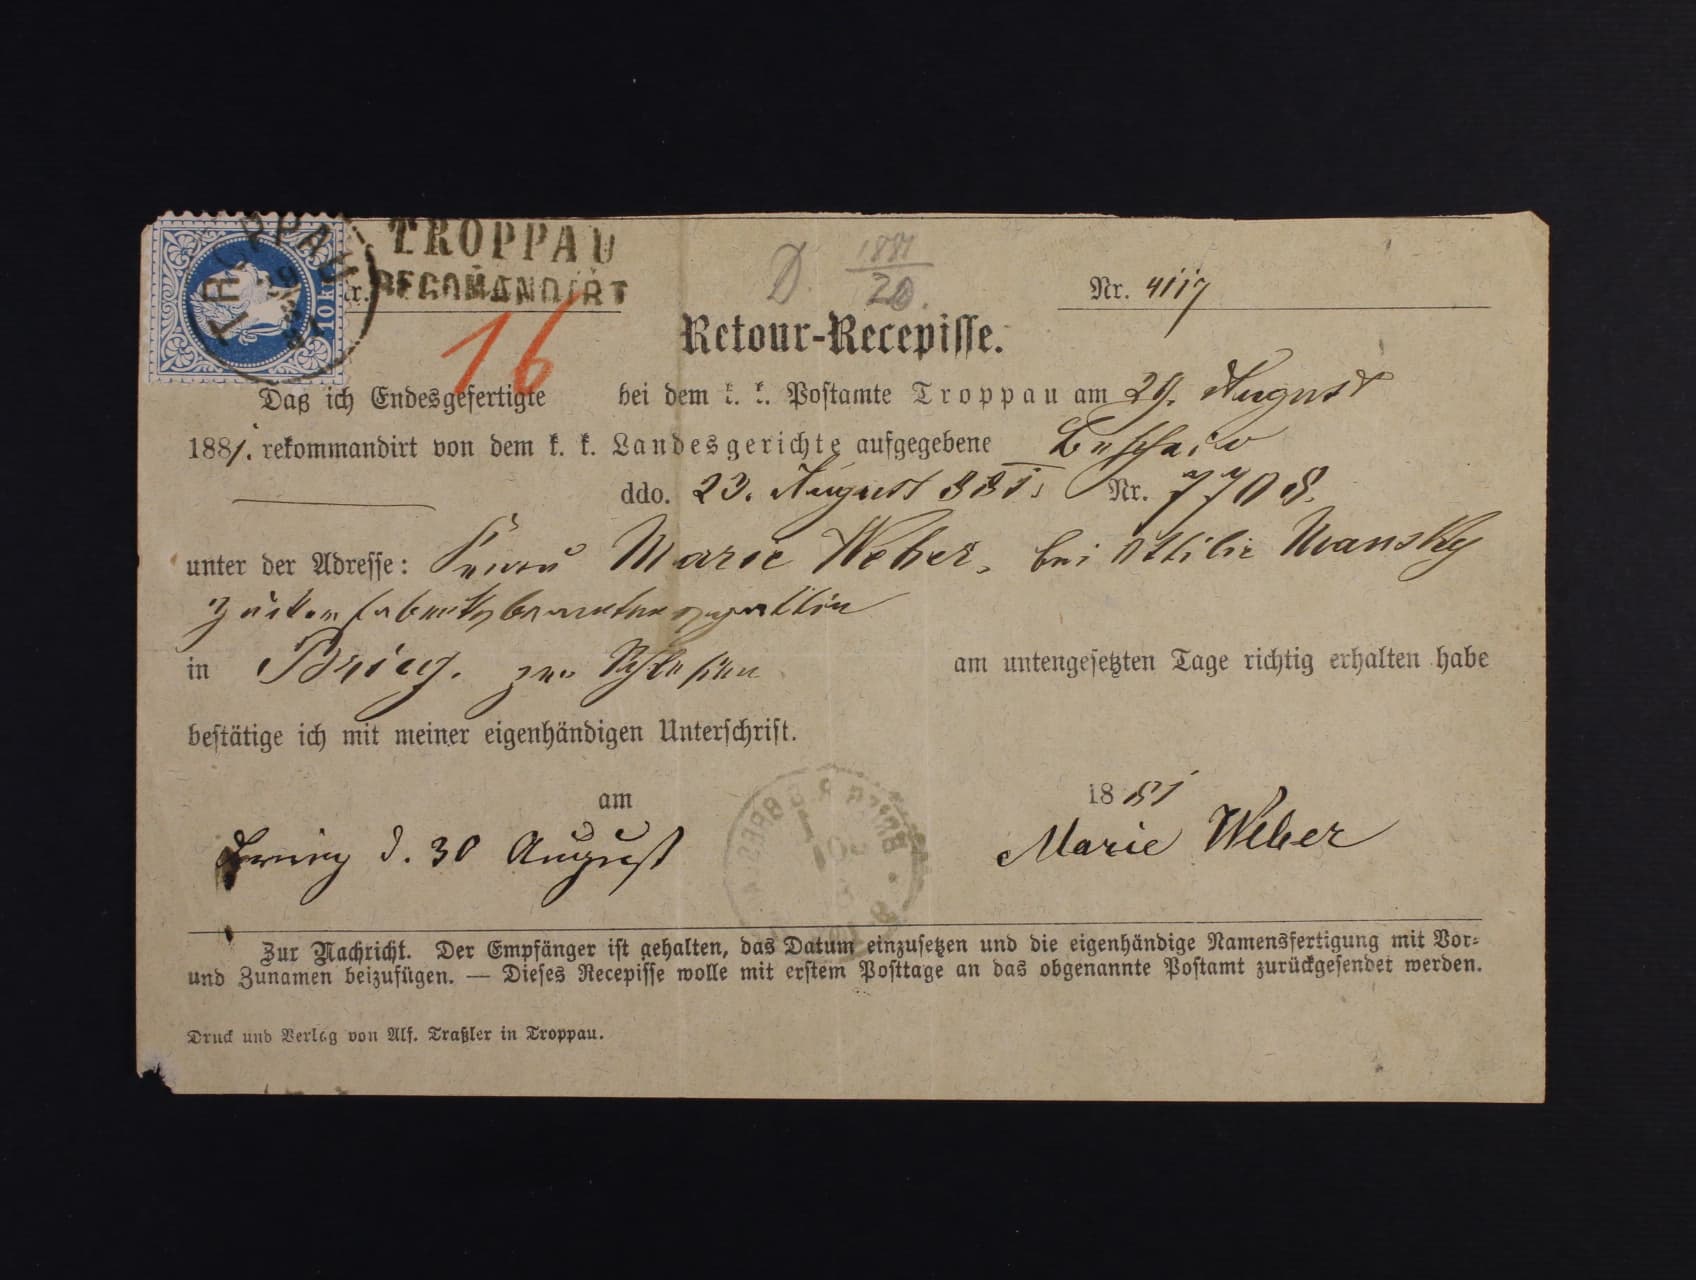 TROPPAU
RECOMANDIRT
TROPPAU
29
10 kr.
D. 1881
20.
Nr. 4117
16
Retour-Recepisse.
Daß ich Endesgefertigte bei dem k. k. Postamte Troppau am 29. August
1881. rekommandirt von dem k. k. Landesgerichte aufgegebene Bescheid
ddo. 23. August 881 Nr. 7708.
unter der Adresse: Frau Marie Weber, bei Ottilie
Zuckerfabriksbeamtensgattin
in Brieg. pr. Schlesien am untengesetzten Tage richtig erhalten habe
bestätige ich mit meiner eigenhändigen Unterschrift.
am 1881
Brieg d. 30 August Marie Weber
Zur Nachricht. Der Empfänger ist gehalten, das Datum einzusetzen und die eigenhändige Namensfertigung mit Vor-
und Zunamen beizufügen. — Dieses Recepisse wolle mit erstem Posttage an das obgenannte Postamt zurückgesendet werden.
Druck und Verlag von Alf. Traßler in Troppau.